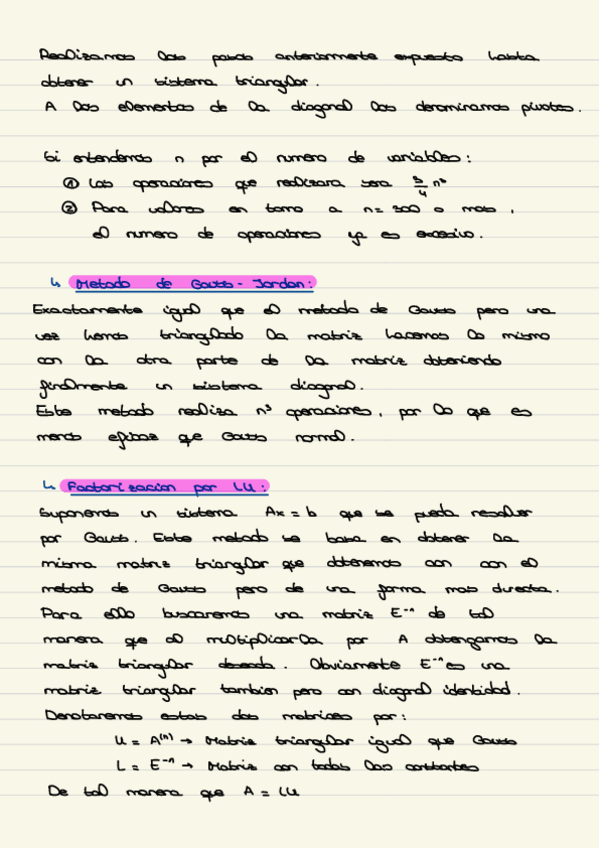 Realizamos los pasos anteriormente expuesto hasta
obtener un sistema triangular.
A los elementos de la diagonal los denominamos pivotes.
Si entendemos n por el numero de variables:
① Las operaciones que realizara sera n³
② Para valores en torno a n = 300 o mas,
el numero de operaciones ya es excesivo.
↳ Metodo de Gauss - Jordan:
Exactamente igual que el metodo de Gauss pero una
vez hemos triangulado la matriz hacemos lo mismo
con la otra parte de la matriz obteniendo
finalmente un sistema diagonal.
Este metodo realiza n³ operaciones, por lo que es
menos eficaz que Gauss normal.
↳ Factorizacion por LU:
Suponemos un sistema Ax = b que se pueda resolver
por Gauss. Este metodo se basa en obtener la
misma matriz triangular que obtenemos con con el
metodo de Gauss pero de una forma mas directa.
Para ello buscaremos una matriz E⁻¹ de tal
manera que al multiplicarla por A obtengamos la
matriz triangular deseada. Obviamente E⁻¹ es una
matriz triangular tambien pero con diagonal identidad.
Denotaremos estas dos matrices por:
U = A⁽ⁿ⁾ → Matriz triangular igual que Gauss
L = E⁻¹ → Matriz con todas las constantes
De tal manera que A = LU